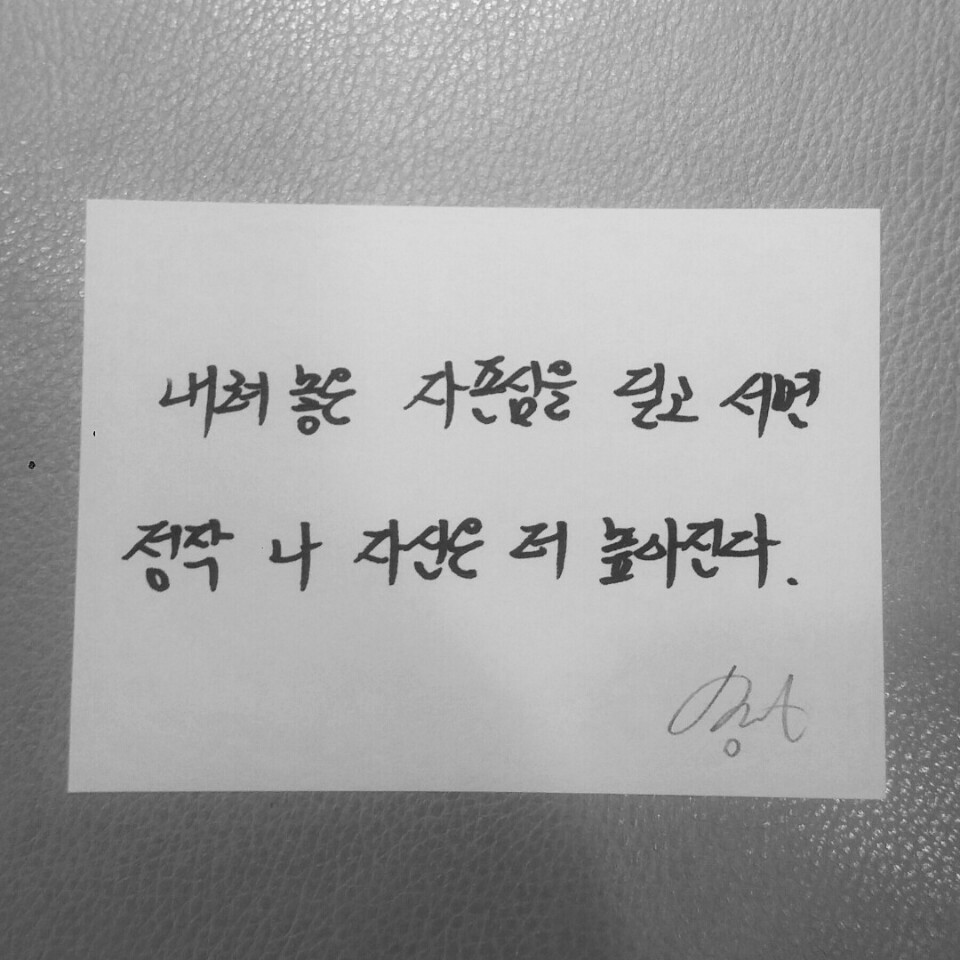 내려 놓은 자존심을 딛고 서면
정작 나 자신은 더 높아진다.